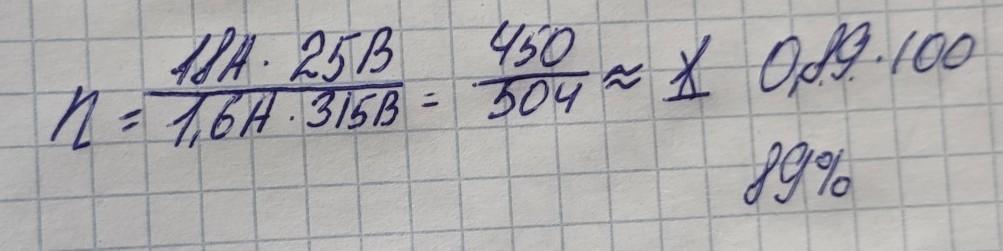 n = 18А · 25В / 1,6А · 315В = 450 / 504 ≈ 1 0,89 · 100
89%